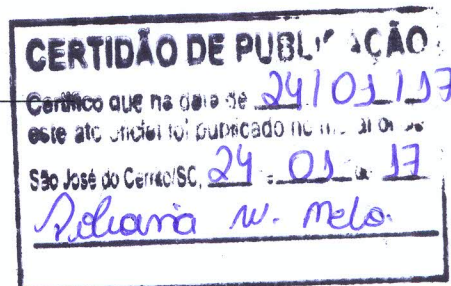 CERTIDÃO DE PUBLICAÇÃO
Certifico que na data de 24/01/17
este ato oficial foi publicado no mural de
São José do Cerrito/SC, 24 01 17
W. Melo.